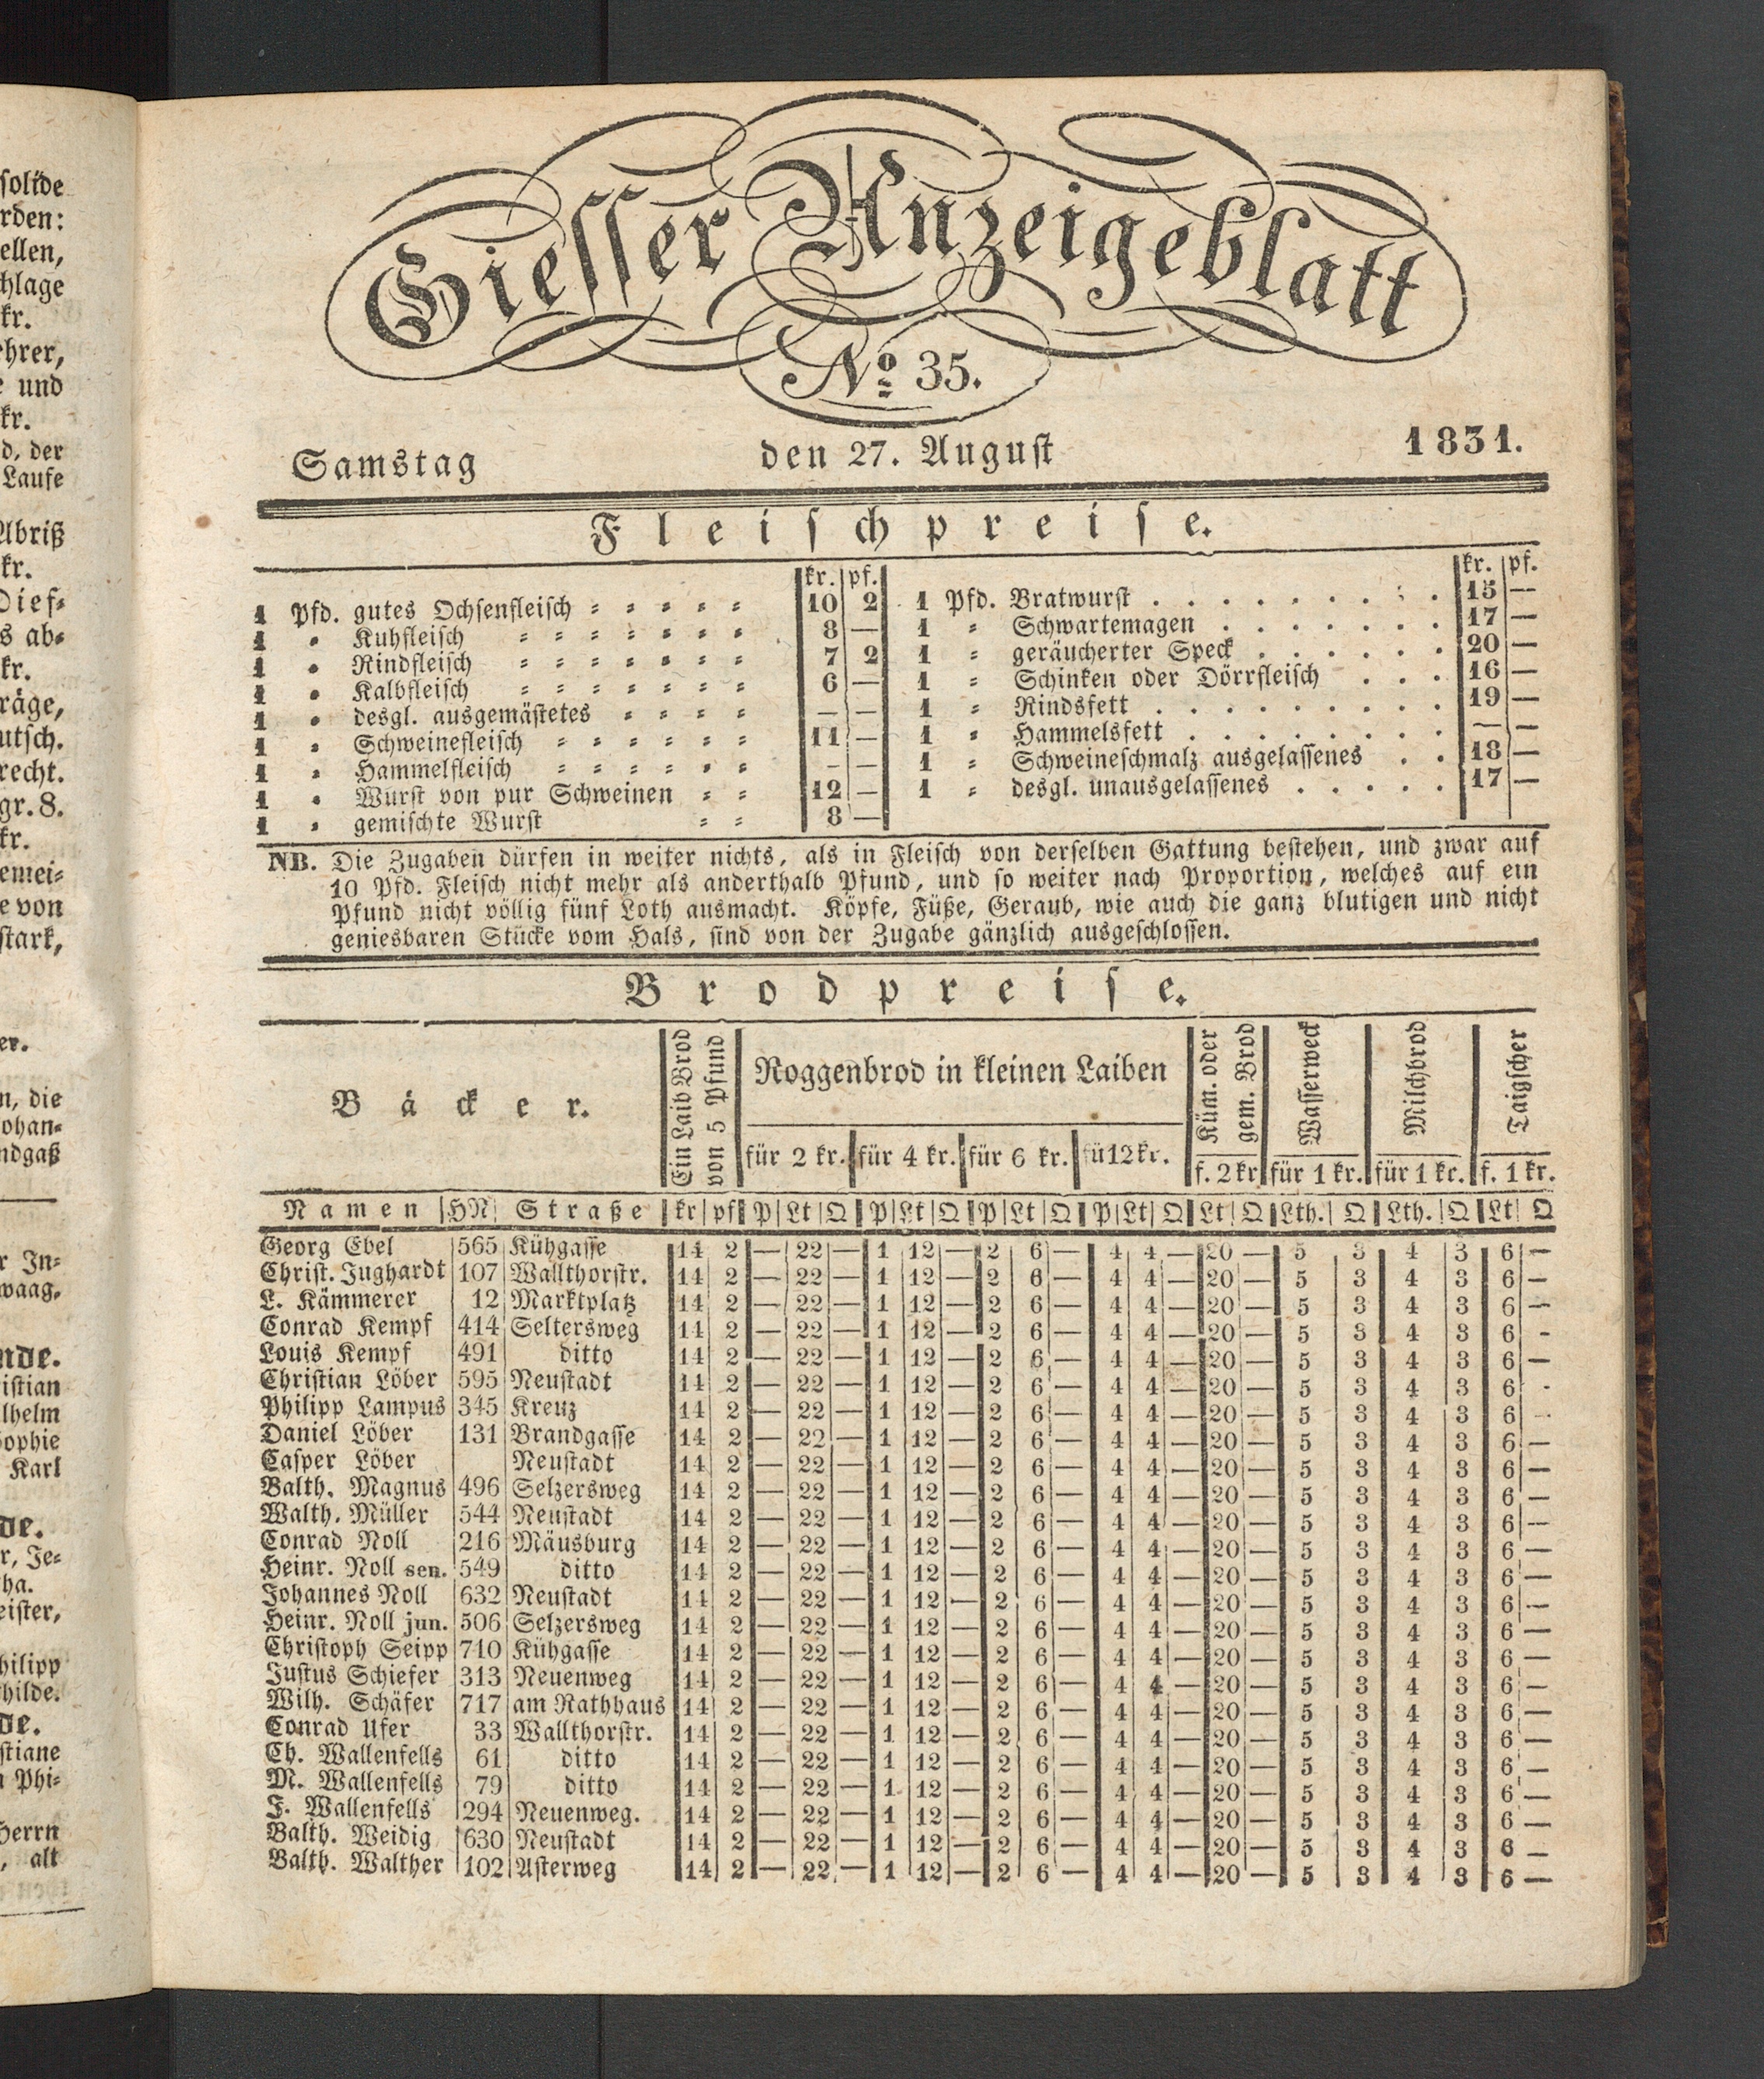 solide
rden:
ellen,
chlage
kr.
ehrer,
e und
kr.
d, der
Laufe
Abriß
kr.
Dief-
s ab-
kr.
räge,
utsch.
recht.
gr. 8.
kr.
emei-
e von
stark,
er.
n, die
ohan-
ndgaß
r In-
waag.
nde.
istian
lhelm
ophie
Karl
de.
r, Je-
ha.
eister,
hilipp
hilde.
de.
stiane
n Phi-
Herrn
, alt
Giesser Anzeigeblatt
No 35.
Samstag den 27. August 1831.
Fleischpreise.
kr. pf. kr. pf.
1 Pfd. gutes Ochsenfleisch = = = = = 10 2 1 Pfd. Bratwurst . . . . . . . . . 15 —
1 = Kuhfleisch = = = = = = = 8 — 1 = Schwartemagen . . . . . . . 17 —
1 = Rindfleisch = = = = = = = 7 2 1 = geräucherter Speck . . . . . . 20 —
1 = Kalbfleisch = = = = = = = 6 — 1 = Schinken oder Dörrfleisch . . . 16 —
1 = desgl. ausgemästetes = = = = — — 1 = Rindsfett . . . . . . . . . 19 —
1 = Schweinefleisch = = = = = = 11 — 1 = Hammelsfett . . . . . . . . — —
1 = Hammelfleisch = = = = = = — — 1 = Schweineschmalz ausgelassenes . . 18 —
1 = Wurst von pur Schweinen = = 12 — 1 = desgl. unausgelassenes . . . . . 17 —
1 = gemischte Wurst = = 8 —
NB. Die Zugaben dürfen in weiter nichts, als in Fleisch von derselben Gattung bestehen, und zwar auf
10 Pfd. Fleisch nicht mehr als anderthalb Pfund, und so weiter nach Proportion, welches auf ein
Pfund nicht völlig fünf Loth ausmacht. Köpfe, Füße, Geraub, wie auch die ganz blutigen und nicht
geniesbaren Stücke vom Hals, sind von der Zugabe gänzlich ausgeschlossen.
Brodpreise.
Bäcker.
Ein Laib Brod
von 5 Pfund
Roggenbrod in kleinen Laiben
Küm. oder
gem. Brod
Wasserweck
Milchbrod
Taigscher
für 2 kr. für 4 kr. für 6 kr. fü12kr. f. 2 kr für 1 kr. für 1 kr. f. 1 kr.
Namen HN Straße kr pf P Lt Q P Lt Q P Lt Q P Lt Q Lt Q Lth. Q Lth. Q Lt Q
Georg Ebel 565 Kühgasse 14 2 — 22 — 1 12 — 2 6 — 4 4 — 20 — 5 3 4 3 6 —
Christ. Jughardt 107 Wallthorstr. 14 2 — 22 — 1 12 — 2 6 — 4 4 — 20 — 5 3 4 3 6 —
L. Kämmerer 12 Marktplatz 14 2 — 22 — 1 12 — 2 6 — 4 4 — 20 — 5 3 4 3 6 —
Conrad Kempf 414 Seltersweg 14 2 — 22 — 1 12 — 2 6 — 4 4 — 20 — 5 3 4 3 6 —
Louis Kempf 491 ditto 14 2 — 22 — 1 12 — 2 6 — 4 4 — 20 — 5 3 4 3 6 —
Christian Löber 595 Neustadt 14 2 — 22 — 1 12 — 2 6 — 4 4 — 20 — 5 3 4 3 6 —
Philipp Lampus 345 Kreuz 14 2 — 22 — 1 12 — 2 6 — 4 4 — 20 — 5 3 4 3 6 —
Daniel Löber 131 Brandgasse 14 2 — 22 — 1 12 — 2 6 — 4 4 — 20 — 5 3 4 3 6 —
Casper Löber Neustadt 14 2 — 22 — 1 12 — 2 6 — 4 4 — 20 — 5 3 4 3 6 —
Balth. Magnus 496 Selzersweg 14 2 — 22 — 1 12 — 2 6 — 4 4 — 20 — 5 3 4 3 6 —
Walth. Müller 544 Neustadt 14 2 — 22 — 1 12 — 2 6 — 4 4 — 20 — 5 3 4 3 6 —
Conrad Noll 216 Mäusburg 14 2 — 22 — 1 12 — 2 6 — 4 4 — 20 — 5 3 4 3 6 —
Heinr. Noll sen. 549 ditto 14 2 — 22 — 1 12 — 2 6 — 4 4 — 20 — 5 3 4 3 6 —
Johannes Noll 632 Neustadt 14 2 — 22 — 1 12 — 2 6 — 4 4 — 20 — 5 3 4 3 6 —
Heinr. Noll jun. 506 Selzersweg 14 2 — 22 — 1 12 — 2 6 — 4 4 — 20 — 5 3 4 3 6 —
Christoph Seipp 710 Kühgasse 14 2 — 22 — 1 12 — 2 6 — 4 4 — 20 — 5 3 4 3 6 —
Justus Schiefer 313 Neuenweg 14 2 — 22 — 1 12 — 2 6 — 4 4 — 20 — 5 3 4 3 6 —
Wilh. Schäfer 717 am Rathhaus 14 2 — 22 — 1 12 — 2 6 — 4 4 — 20 — 5 3 4 3 6 —
Conrad Ufer 33 Wallthorstr. 14 2 — 22 — 1 12 — 2 6 — 4 4 — 20 — 5 3 4 3 6 —
Ch. Wallenfells 61 ditto 14 2 — 22 — 1 12 — 2 6 — 4 4 — 20 — 5 3 4 3 6 —
M. Wallenfells 79 ditto 14 2 — 22 — 1 12 — 2 6 — 4 4 — 20 — 5 3 4 3 6 —
J. Wallenfells 294 Neuenweg. 14 2 — 22 — 1 12 — 2 6 — 4 4 — 20 — 5 3 4 3 6 —
Balth. Weidig 630 Neustadt 14 2 — 22 — 1 12 — 2 6 — 4 4 — 20 — 5 3 4 3 6 —
Balth. Walther 102 Asterweg 14 2 — 22 — 1 12 — 2 6 — 4 4 — 20 — 5 3 4 3 6 —